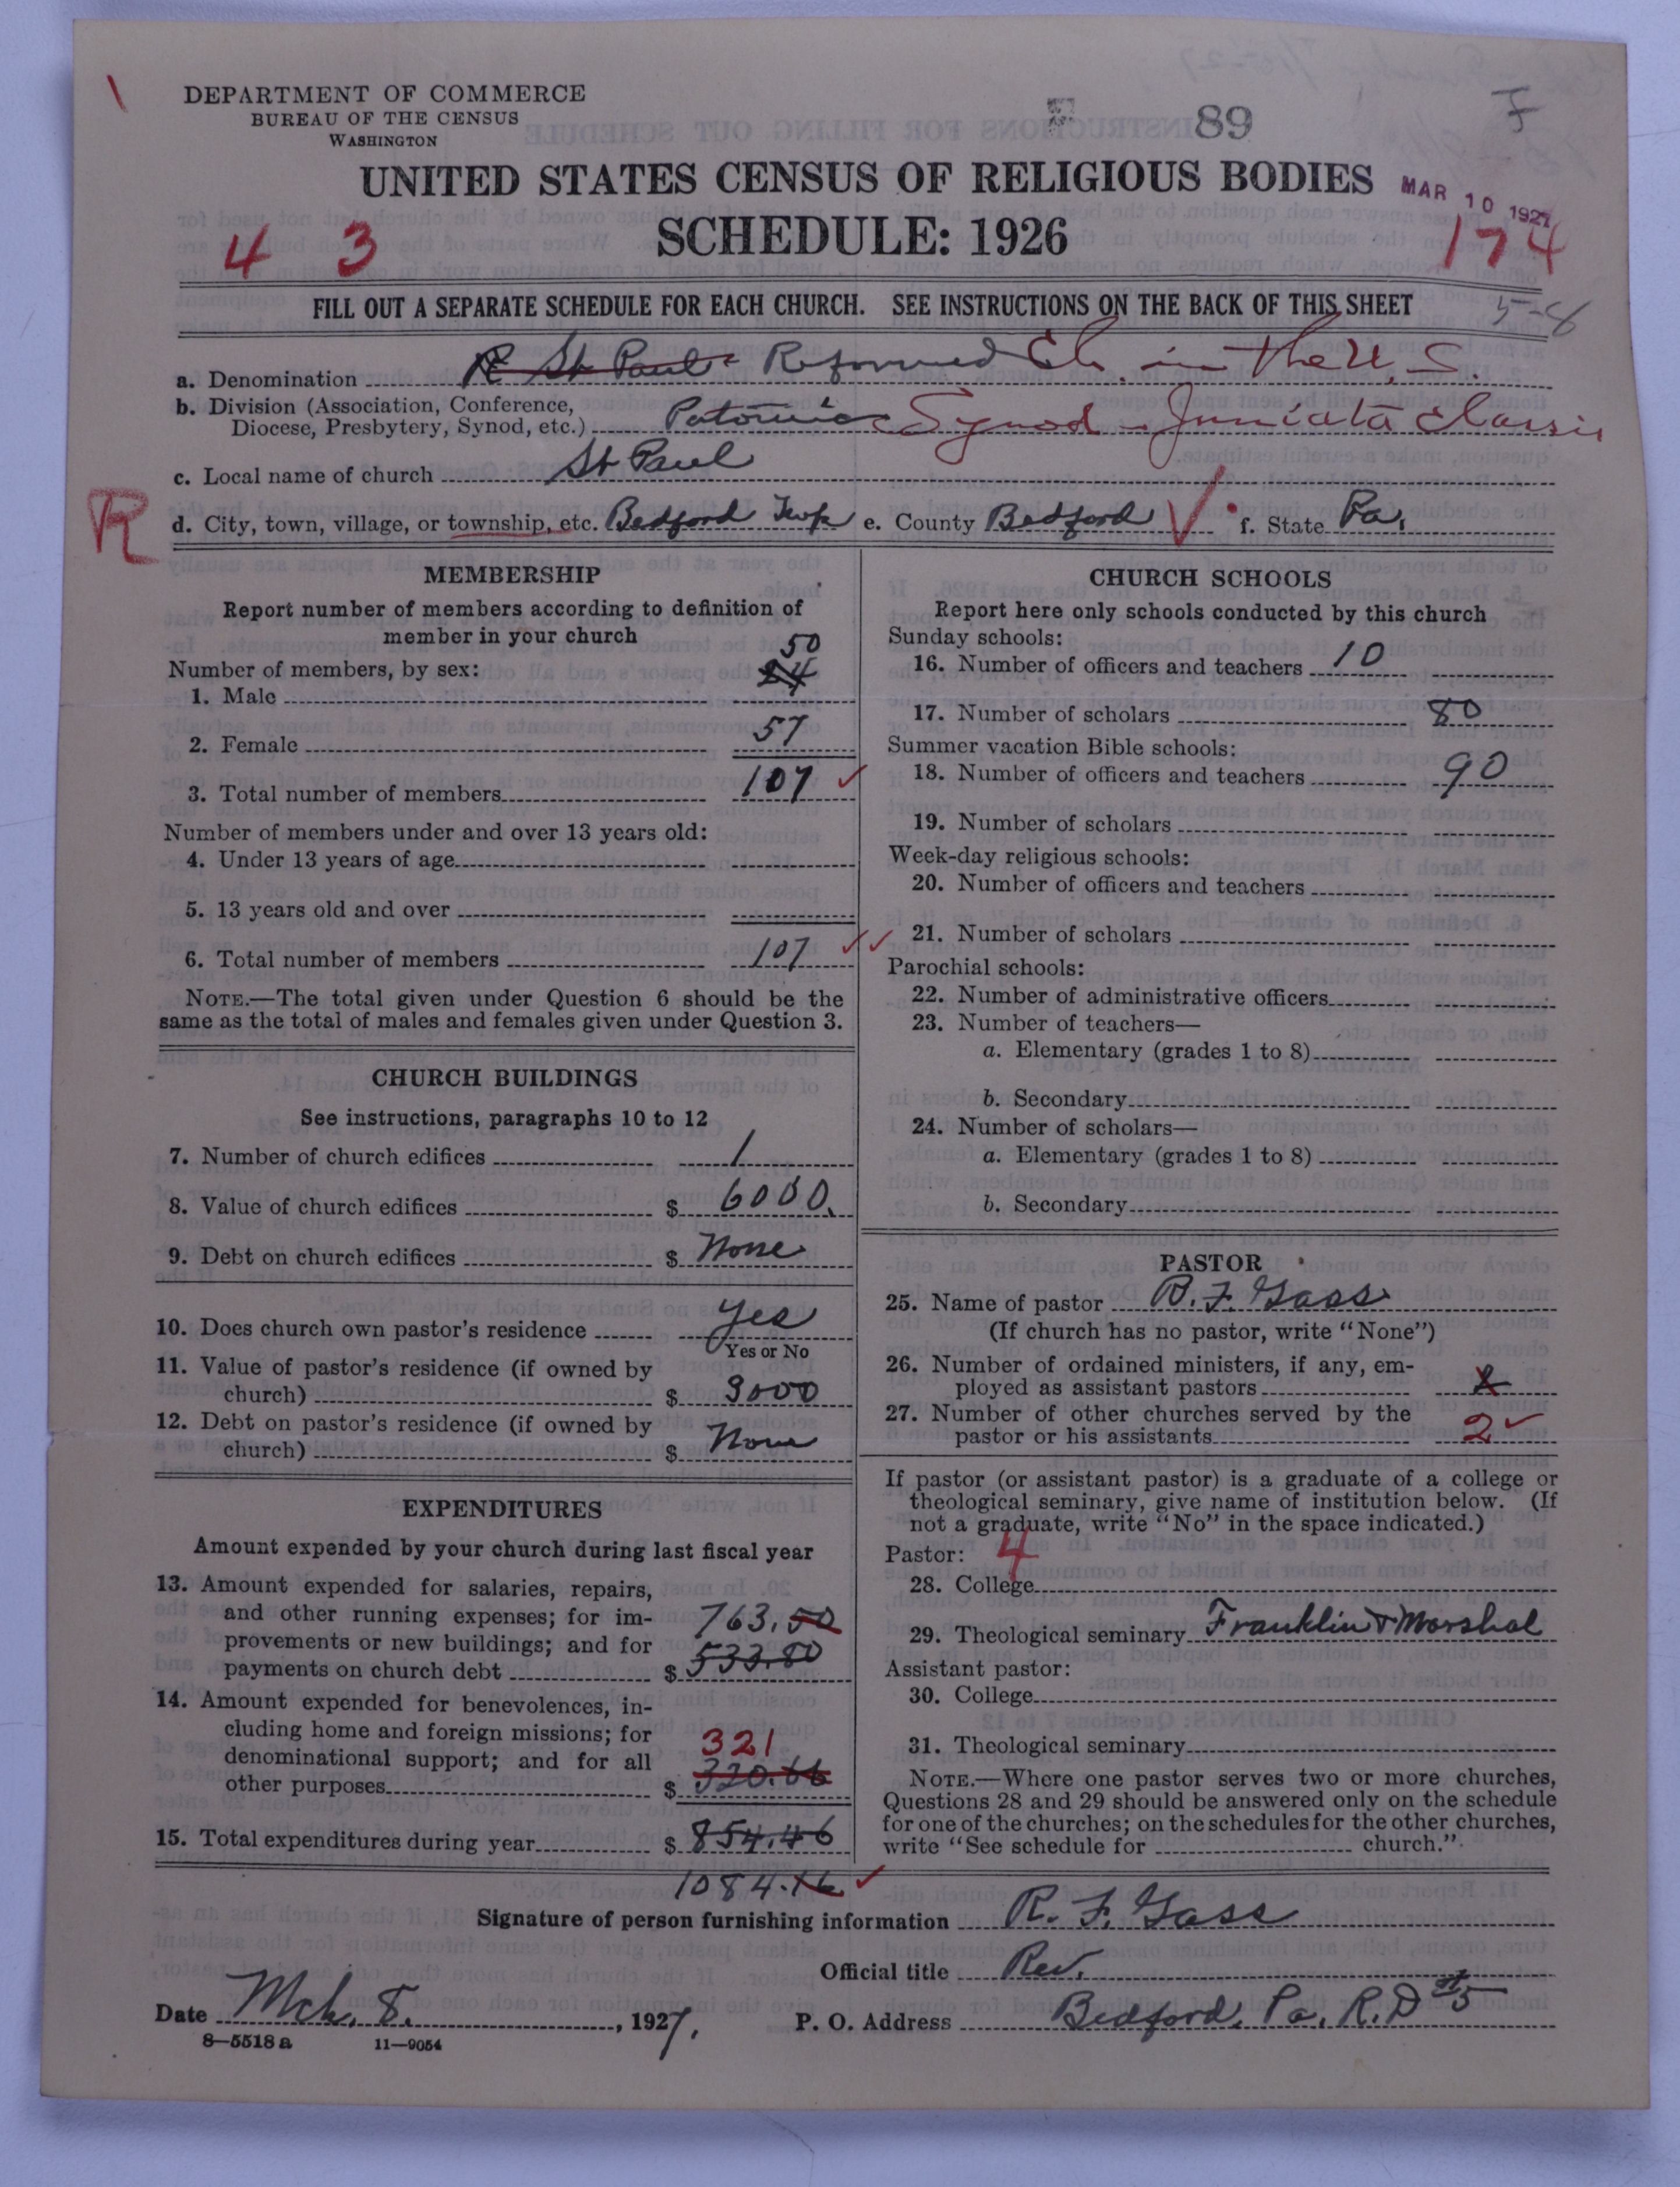 DEPARTMENT OF COMMERCE
BUREAU OF THE CENSUS
WASHINGTON
89
F
UNITED STATES CENSUS OF RELIGIOUS BODIES
MAR 10 1927
SCHEDULE: 1926
4 3
174
FILL OUT A SEPARATE SCHEDULE FOR EACH CHURCH. SEE INSTRUCTIONS ON THE BACK OF THIS SHEET
5-8
a. Denomination R St Paul Reformed Ch. in the U. S.
b. Division (Association, Conference,
Diocese, Presbytery, Synod, etc.) Potomac Synod - Juniata Classis
c. Local name of church St Paul
R
d. City, town, village, or township, etc. Bedford Twp e. County Bedford f. State Pa.
MEMBERSHIP
Report number of members according to definition of
member in your church
Number of members, by sex:
50
1. Male
2. Female 57
3. Total number of members 107
Number of members under and over 13 years old:
4. Under 13 years of age
5. 13 years old and over
6. Total number of members 107
NOTE.—The total given under Question 6 should be the
same as the total of males and females given under Question 3.
CHURCH BUILDINGS
See instructions, paragraphs 10 to 12
7. Number of church edifices 1
8. Value of church edifices $ 6000.
9. Debt on church edifices $ None
10. Does church own pastor's residence Yes
Yes or No
11. Value of pastor's residence (if owned by
church) $ 3000
12. Debt on pastor's residence (if owned by
church) $ None
EXPENDITURES
Amount expended by your church during last fiscal year
13. Amount expended for salaries, repairs,
and other running expenses; for im-
763.50
provements or new buildings; and for
payments on church debt $ 533.80
14. Amount expended for benevolences, in-
cluding home and foreign missions; for
321
denominational support; and for all
other purposes $ 320.66
15. Total expenditures during year $ 854.46
1084.16
CHURCH SCHOOLS
Report here only schools conducted by this church
Sunday schools:
16. Number of officers and teachers 10
17. Number of scholars 80
Summer vacation Bible schools:
18. Number of officers and teachers 90
19. Number of scholars
Week-day religious schools:
20. Number of officers and teachers
21. Number of scholars
Parochial schools:
22. Number of administrative officers
23. Number of teachers—
a. Elementary (grades 1 to 8)
b. Secondary
24. Number of scholars—
a. Elementary (grades 1 to 8)
b. Secondary
PASTOR
25. Name of pastor R. F. Gass
(If church has no pastor, write "None")
26. Number of ordained ministers, if any, em-
ployed as assistant pastors
27. Number of other churches served by the
pastor or his assistants 2
If pastor (or assistant pastor) is a graduate of a college or
theological seminary, give name of institution below. (If
not a graduate, write "No" in the space indicated.)
Pastor: 4
28. College
29. Theological seminary Franklin & Marshal
Assistant pastor:
30. College
31. Theological seminary
NOTE.—Where one pastor serves two or more churches,
Questions 28 and 29 should be answered only on the schedule
for one of the churches; on the schedules for the other churches,
write "See schedule for church."
Signature of person furnishing information R. F. Gass
Official title Rev.
Date Mch. 8. , 1927.
P. O. Address Bedford, Pa. R.D #5
8—5518 a 11—9054